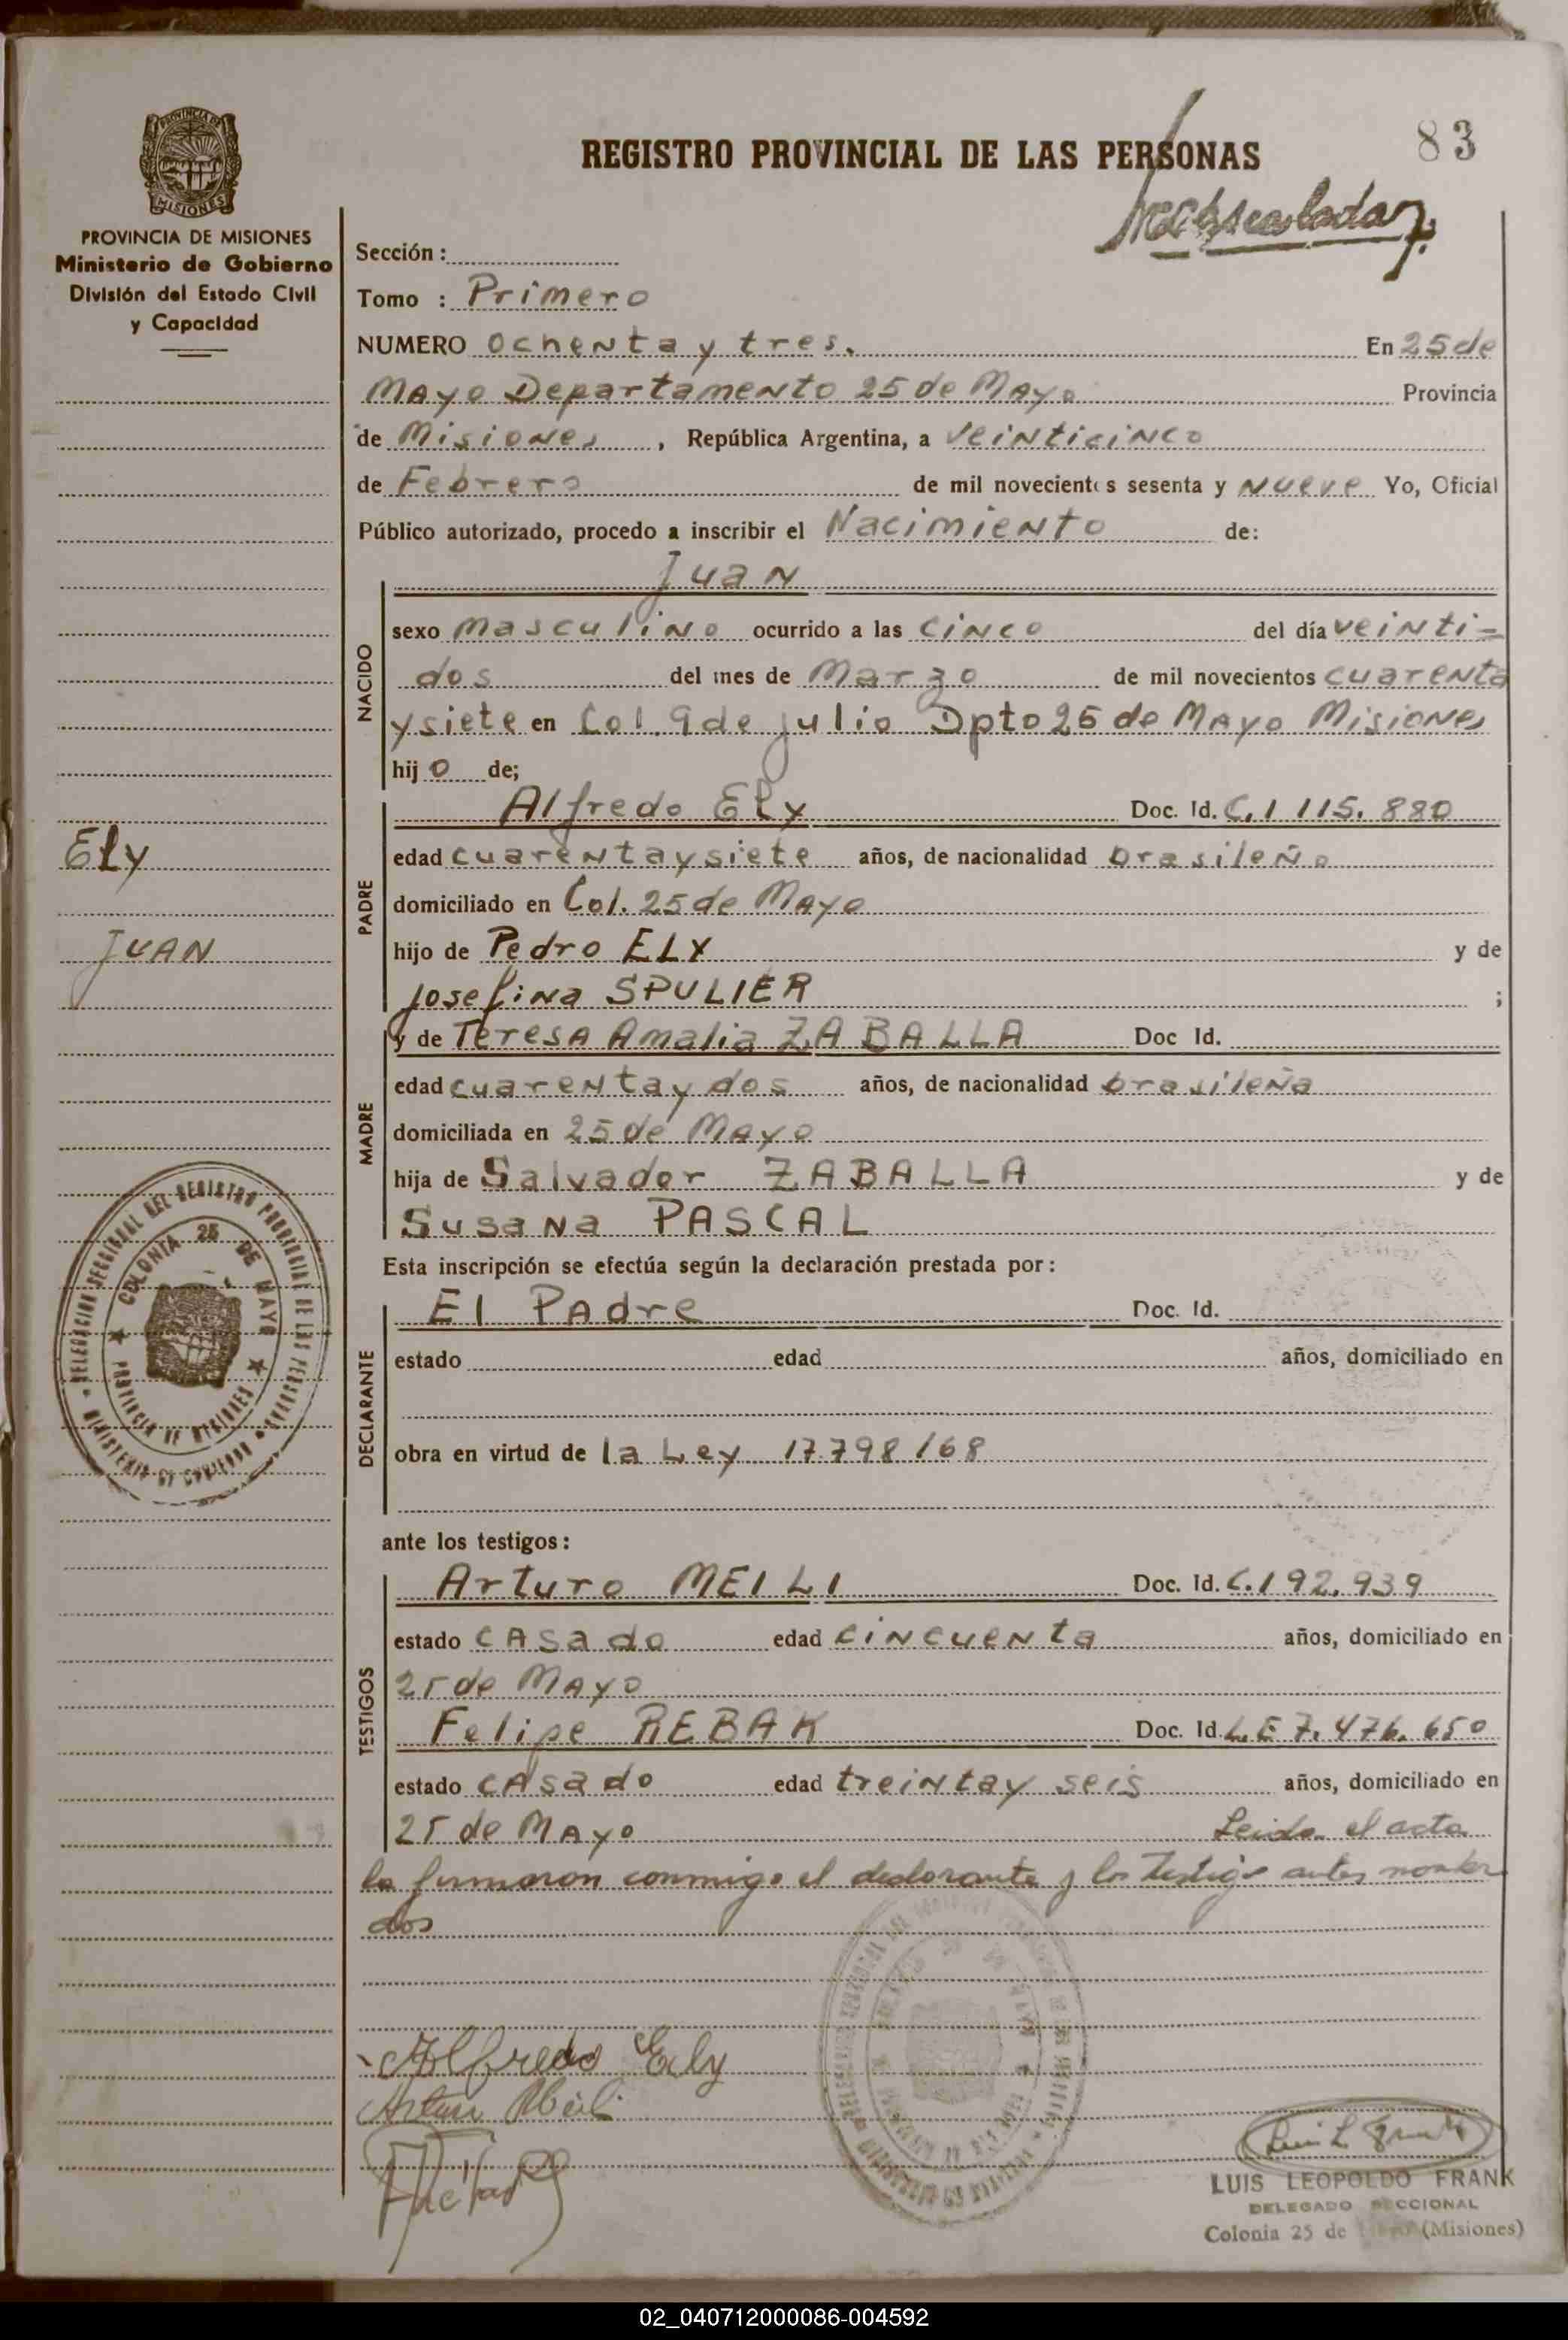 83
REGISTRO PROVINCIAL DE LAS PERSONAS
PROVINCIA DE
MISIONES
PROVINCIA DE MISIONES
Ministerio de Gobierno
División del Estado Civil
y Capacidad
Sección :
Tomo : Primero
NUMERO Ochenta y tres. En 25 de
Mayo Departamento 25 de Mayo Provincia
de Misiones, República Argentina, a veinticinco
de Febrero de mil novecientos sesenta y nueve Yo, Oficial
Público autorizado, procedo a inscribir el Nacimiento de:
Juan
NACIDO
sexo masculino ocurrido a las cinco del día veinti=
dos del mes de Marzo de mil novecientos cuarenta
y siete en Col. 9 de julio Dpto 25 de Mayo Misiones
hij o de;
Alfredo Ely Doc. Id. C.I 115.880
Ely
PADRE
edad cuarenta y siete años, de nacionalidad brasileño
domiciliado en Col. 25 de Mayo
JUAN
hijo de Pedro ELY y de
Josefina SPULIER ;
y de Teresa Amalia ZABALLA Doc Id.
MADRE
edad cuarenta y dos años, de nacionalidad brasileña
domiciliada en 25 de Mayo
hija de Salvador ZABALLA y de
Susana PASCAL
Esta inscripción se efectúa según la declaración prestada por :
El Padre Doc. Id.
DELEGACION SECCIONAL DEL REGISTRO PROVINCIAL DE LAS PERSONAS
MINISTERIO DE GOBIERNO
COLONIA 25 DE MAYO
PROVINCIA DE MISIONES
DECLARANTE
estado edad años, domiciliado en
obra en virtud de la Ley 17.798/68
ante los testigos :
Arturo MEILI Doc. Id. C.I 92.939
TESTIGOS
estado casado edad cincuenta años, domiciliado en
25 de Mayo
Felipe REBAK Doc. Id. L.E 7.476.650
estado casado edad treinta y seis años, domiciliado en
25 de Mayo Leida el acta
la firmaron conmigo el declarante y los testigos antes nombra
dos
Alfredo Ely
Arturo Meili
LUIS LEOPOLDO FRANK
DELEGADO SECCIONAL
Colonia 25 de (Misiones)
02_040712000086-004592